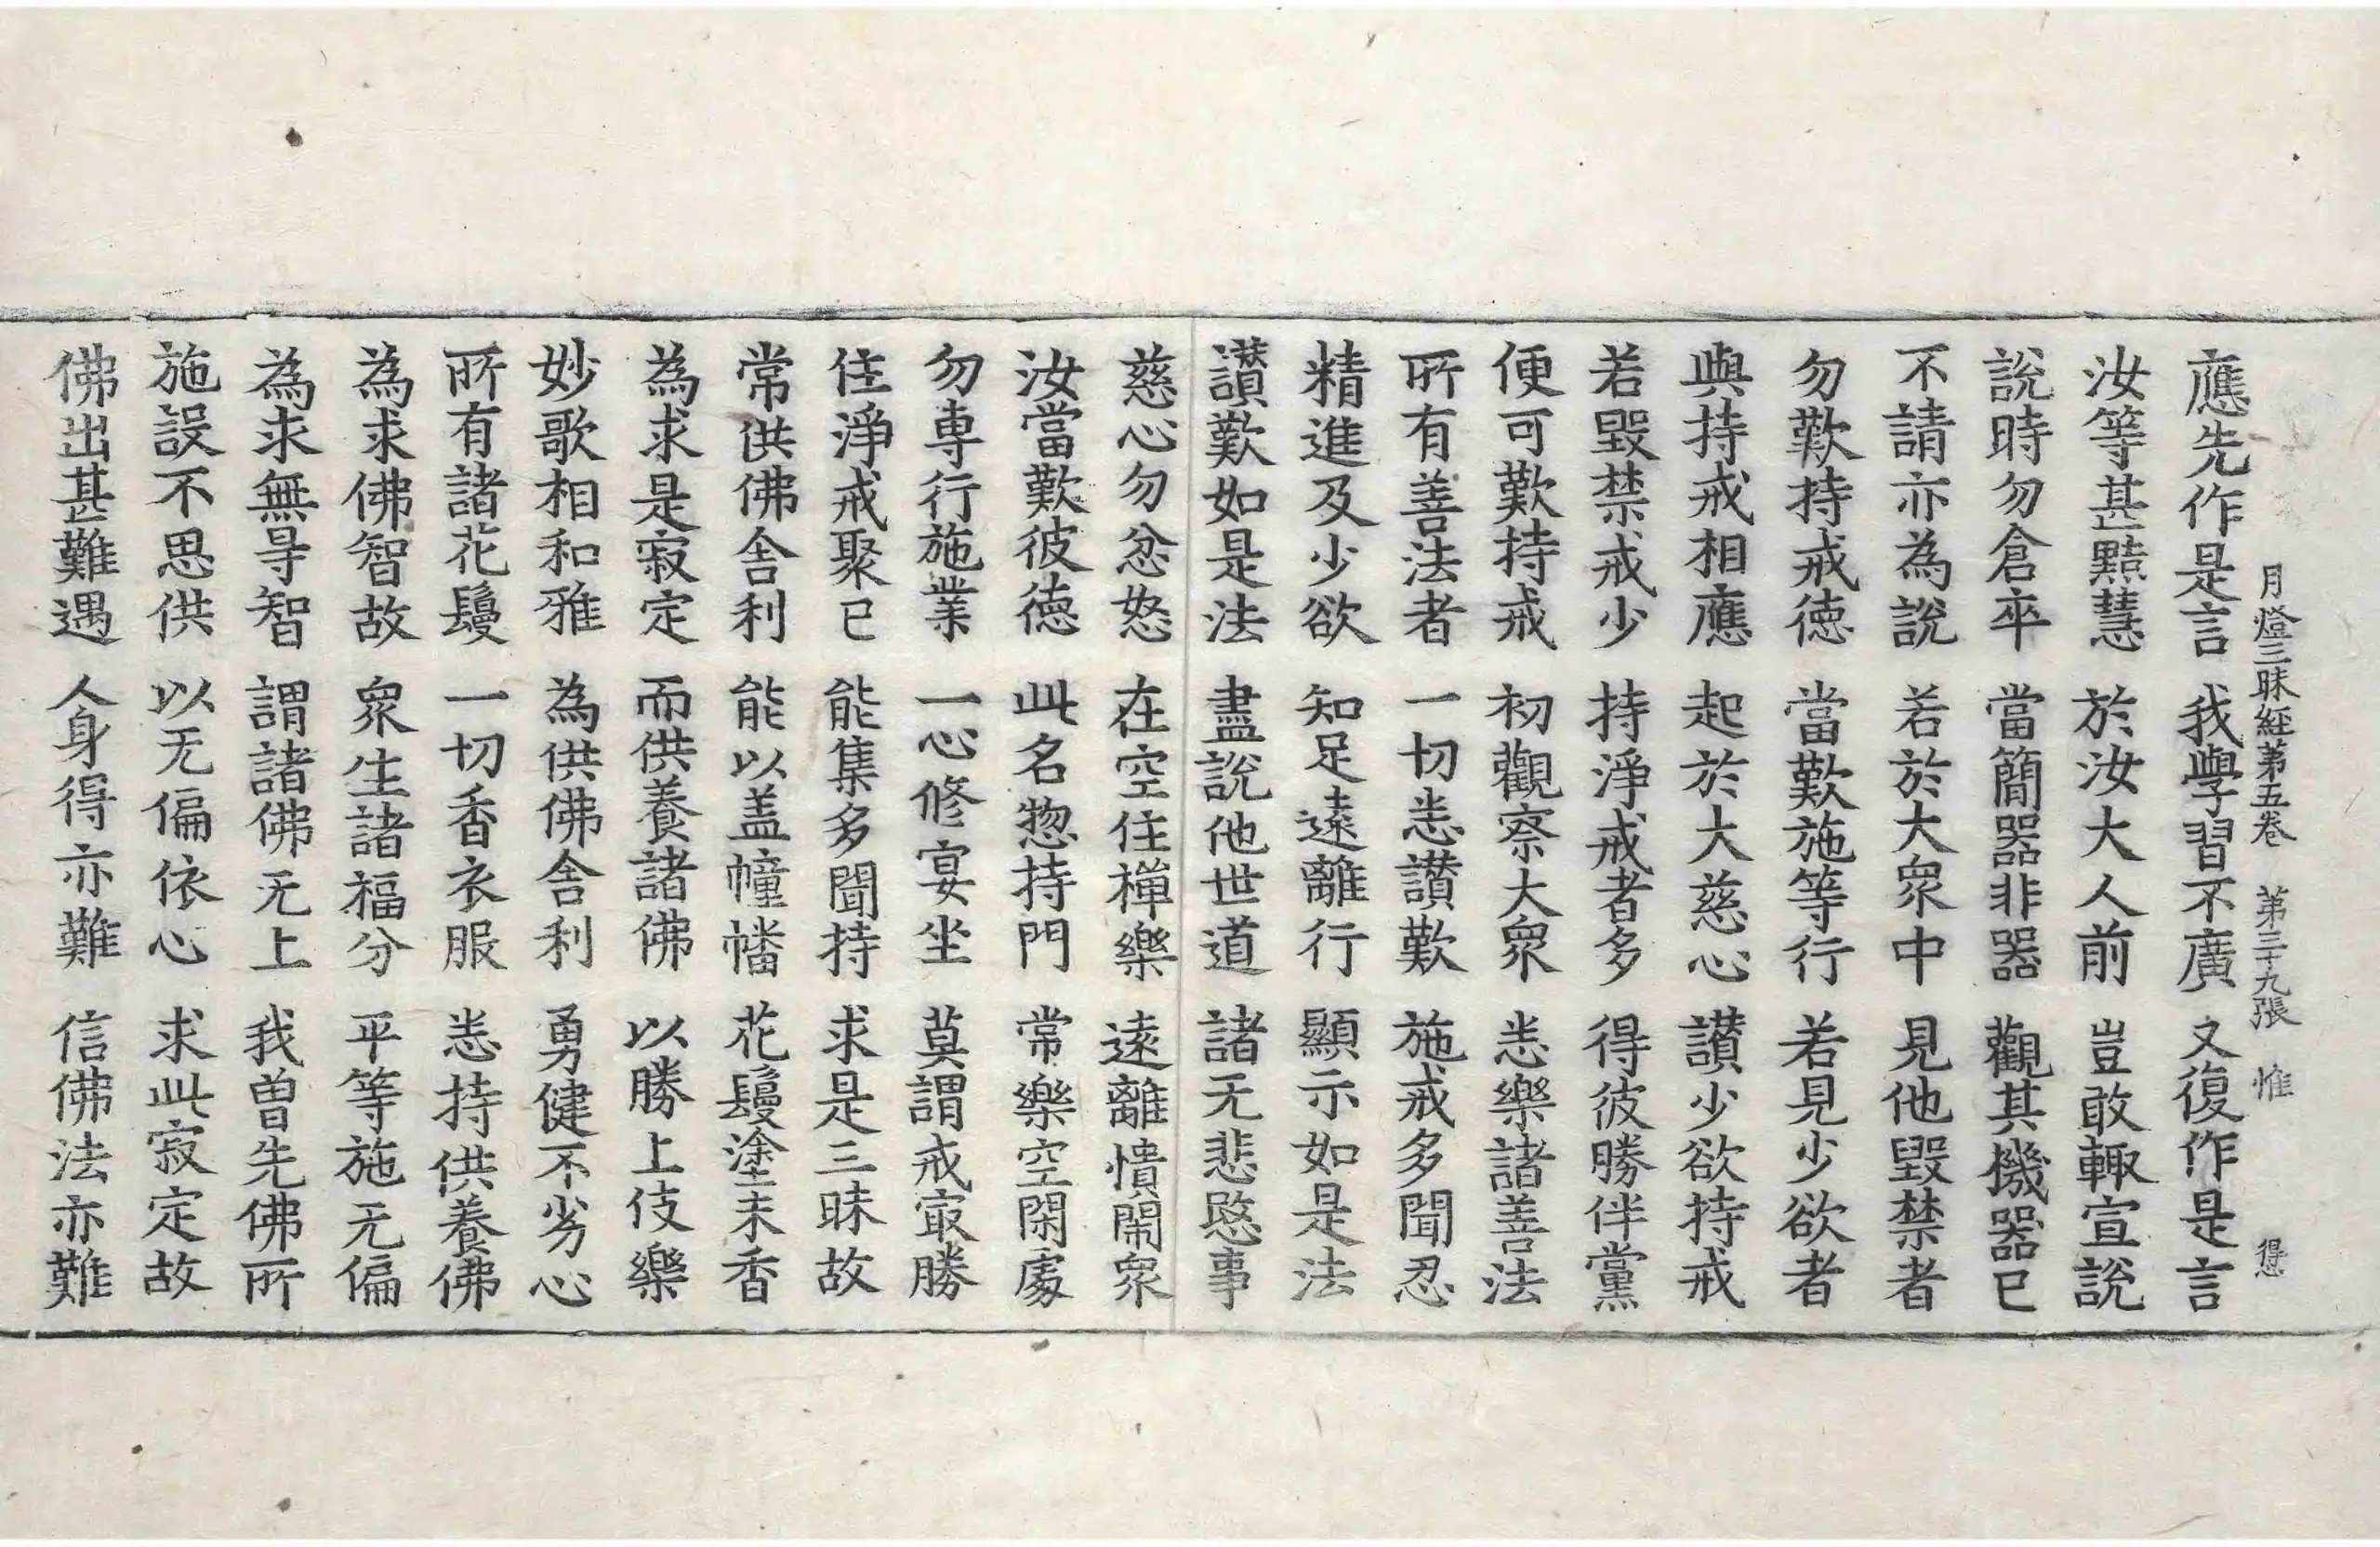 月燈三昧經第五卷 第三十九張 惟 得
應先作是言 我學習不廣 又復作是言
汝等甚黠慧 於汝大人前 豈敢輙宣說
說時勿倉卒 當簡器非器 觀其機器已
不請亦為說 若於大衆中 見他毀禁者
勿歎持戒德 當歎施等行 若見少欲者
與持戒相應 起於大慈心 讃少欲持戒
若毀禁戒少 持淨戒者多 得彼勝伴黨
便可歎持戒 初觀察大衆 悉樂諸善法
所有善法者 一切悉讃歎 施戒多聞忍
精進及少欲 知足遠離行 顯示如是法
讃歎如是法 盡說他世道 諸无悲愍事
慈心勿忿怒 在空住禪樂 遠離憒閙衆
汝當歎彼德 此名惣持門 常樂空閑處
勿專行施業 一心修宴坐 莫謂戒㝡勝
住淨戒聚已 能集多聞持 求是三昧故
常供佛舍利 能以盖幢幡 花鬘塗末香
為求是寂定 而供養諸佛 以勝上伎樂
妙歌相和雅 為供佛舍利 勇健不劣心
所有諸花鬘 一切香衣服 悉持供養佛
為求佛智故 衆生諸福分 平等施无偏
為求無㝵智 謂諸佛无上 我曾先佛所
施設不思供 以无偏依心 求此寂定故
佛出甚難遇 人身得亦難 信佛法亦難